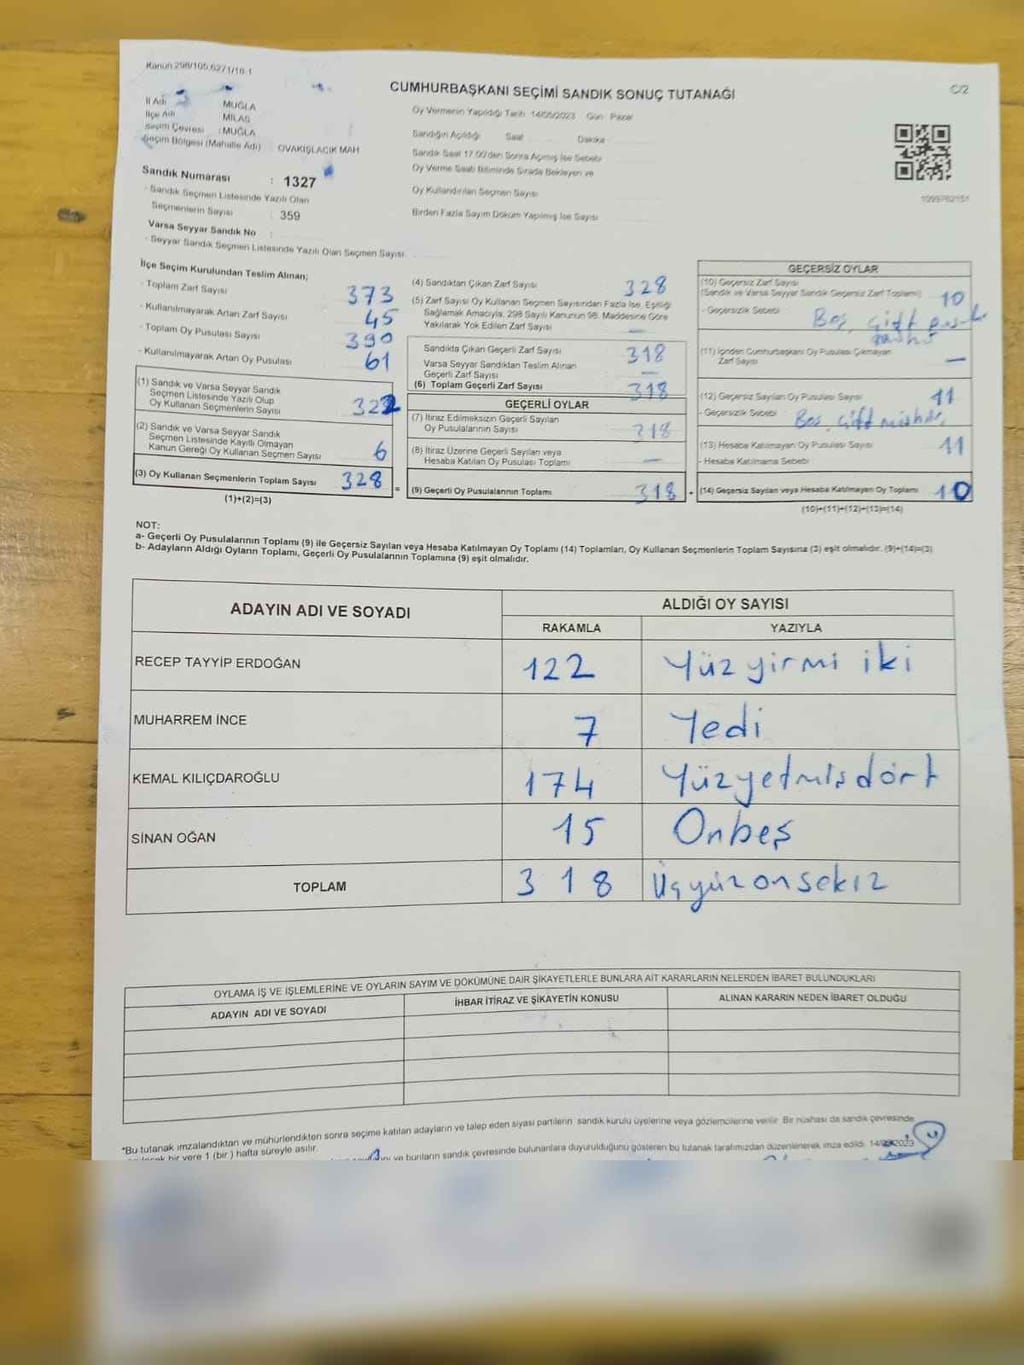 Kanun 298/105,6271/16-1
CUMHURBAŞKANI SEÇİMİ SANDIK SONUÇ TUTANAĞI
C/2
İl Adı : MUĞLA
İlçe Adı : MİLAS
Seçim Çevresi : MUĞLA
Seçim Bölgesi (Mahalle Adı) : OVAKIŞLACIK MAH
Sandık Numarası : 1327
- Sandık Seçmen Listesinde Yazılı Olan
Seçmenlerin Sayısı : 359
Varsa Seyyar Sandık No :
- Seyyar Sandık Seçmen Listesinde Yazılı Olan Seçmen Sayısı
Oy Vermenin Yapıldığı Tarih 14/05/2023 Gün Pazar
Sandığın Açıldığı Saat Dakika
Sandık Saat 17.00'dan Sonra Açılmış İse Sebebi
Oy Verme Saati Bitiminde Sırada Bekleyen ve
Oy Kullandırılan Seçmen Sayısı
Birden Fazla Sayım Döküm Yapılmış İse Sayısı
1099762151
İlçe Seçim Kurulundan Teslim Alınan;
- Toplam Zarf Sayısı 373
- Kullanılmayarak Artan Zarf Sayısı 45
- Toplam Oy Pusulası Sayısı 390
- Kullanılmayarak Artan Oy Pusulası 61
(1) Sandık ve Varsa Seyyar Sandık
Seçmen Listesinde Yazılı Olup
Oy Kullanan Seçmenlerin Sayısı 322
(2) Sandık ve Varsa Seyyar Sandık
Seçmen Listesinde Kayıtlı Olmayan
Kanun Gereği Oy Kullanan Seçmen Sayısı 6
(3) Oy Kullanan Seçmenlerin Toplam Sayısı 328 =
(1)+(2)=(3)
(4) Sandıktan Çıkan Zarf Sayısı 328
(5) Zarf Sayısı Oy Kullanan Seçmen Sayısından Fazla İse, Eşitliği
Sağlamak Amacıyla, 298 Sayılı Kanunun 98. Maddesine Göre
Yakılarak Yok Edilen Zarf Sayısı —
Sandıkta Çıkan Geçerli Zarf Sayısı 318
Varsa Seyyar Sandıktan Teslim Alınan
Geçerli Zarf Sayısı —
(6) Toplam Geçerli Zarf Sayısı 318
GEÇERLİ OYLAR
(7) İtiraz Edilmeksizin Geçerli Sayılan
Oy Pusulalarının Sayısı 318
(8) İtiraz Üzerine Geçerli Sayılan veya
Hesaba Katılan Oy Pusulası Toplamı —
(9) Geçerli Oy Pusulalarının Toplamı 318 +
GEÇERSİZ OYLAR
(10) Geçersiz Zarf Sayısı
(Sandık ve Varsa Seyyar Sandık Geçersiz Zarf Toplamı) 10
- Geçersizlik Sebebi Boş, çift
(11) İçinden Cumhurbaşkanı Oy Pusulası Çıkmayan
Zarf Sayısı —
(12) Geçersiz Sayılan Oy Pusulası Sayısı 11
- Geçersizlik Sebebi Boş, çift
(13) Hesaba Katılmayan Oy Pusulası Sayısı 11
- Hesaba Katılmama Sebebi
(14) Geçersiz Sayılan veya Hesaba Katılmayan Oy Toplamı 10
(10)+(11)+(12)+(13)=(14)
NOT:
a- Geçerli Oy Pusulalarının Toplamı (9) ile Geçersiz Sayılan veya Hesaba Katılmayan Oy Toplamı (14) Toplamları, Oy Kullanan Seçmenlerin Toplam Sayısına (3) eşit olmalıdır. (9)+(14)=(3)
b- Adayların Aldığı Oyların Toplamı, Geçerli Oy Pusulalarının Toplamına (9) eşit olmalıdır.
ADAYIN ADI VE SOYADI ALDIĞI OY SAYISI
RAKAMLA YAZIYLA
RECEP TAYYİP ERDOĞAN 122 Yüzyirmi iki
MUHARREM İNCE 7 Yedi
KEMAL KILIÇDAROĞLU 174 Yüzyetmişdört
SİNAN OĞAN 15 Onbeş
TOPLAM 318 Üçyüzonsekiz
OYLAMA İŞ VE İŞLEMLERİNE VE OYLARIN SAYIM VE DÖKÜMÜNE DAİR ŞİKAYETLERLE BUNLARA AİT KARARLARIN NELERDEN İBARET BULUNDUKLARI
ADAYIN ADI VE SOYADI İHBAR İTİRAZ VE ŞİKAYETİN KONUSU ALINAN KARARIN NEDEN İBARET OLDUĞU
*Bu tutanak imzalandıktan ve mühürlendikten sonra seçime katılan adayların ve talep eden siyasi partilerin sandık kurulu üyelerine veya gözlemcilerine verilir. Bir nüshası da sandık çevresinde
bir yere 1 (bir) hafta süreyle asılır.
ve bunların sandık çevresinde bulunanlara duyurulduğunu gösteren bu tutanak tarafımızdan düzenlenerek imza edildi. 14/05/2023